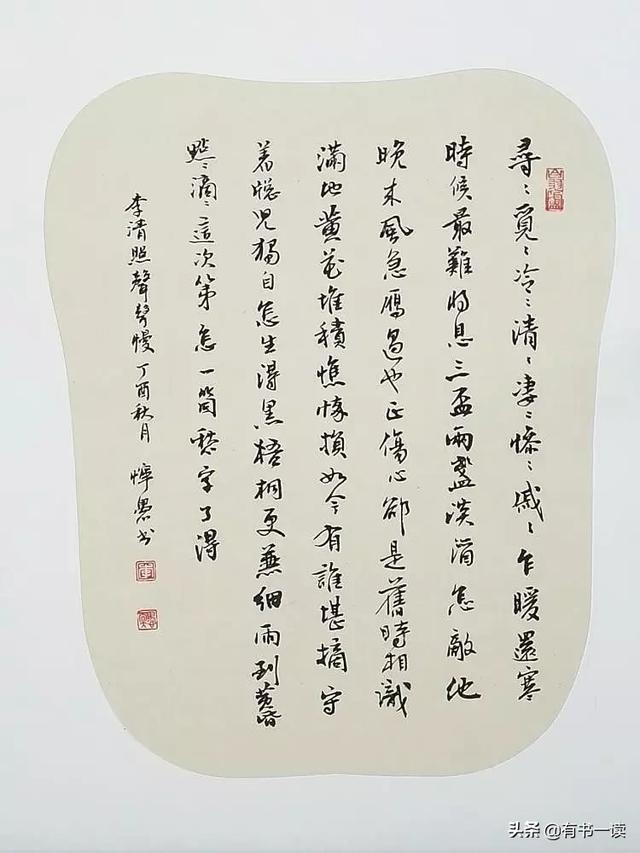 尋〻覓〻冷〻清〻凄〻慘〻戚〻乍暖還寒
時候最難將息三盃兩盞淡酒怎敵他
晚來風急雁過也正傷心卻是舊時相識
滿地黃花堆積憔悴損如今有誰堪摘守
着窓兒獨自怎生得黑梧桐更兼細雨到黃昏
點〻滴〻這次第怎一箇愁字了得
李清照聲聲慢丁酉秋月書
头条 @有书一读